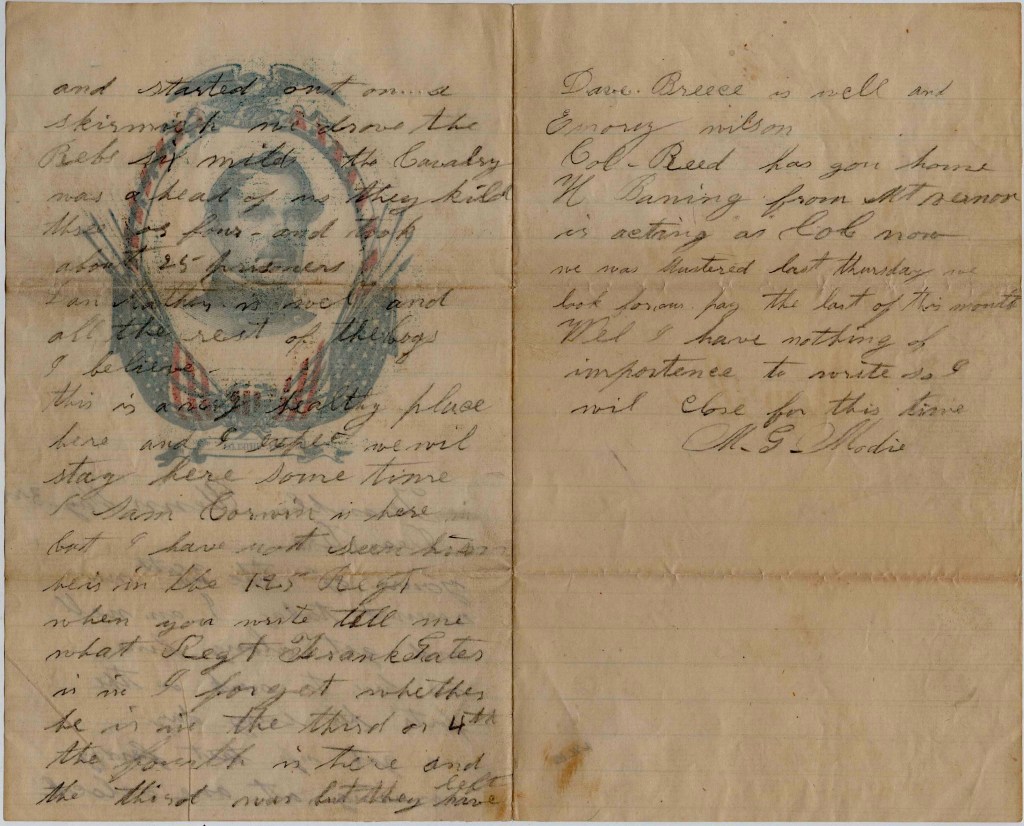 and started out on a
skirmish we drove the
Rebs six milds the Cavalry
was a head of us they kild
three or four - and took
about 25 prisoners
Dan is well and
all the rest of the boys
I believe -
this is a very healthy place
here and I expec we wil
stay here some time
Sam Corwin is here
but I have not seen him
he is in the 125 Regt
when you write tell me
what Regt Frank Gates
is in I forget whether
he is in the third or 4th
the fourth is here and
the third was but they have left
Dave. Breece is well and
wilson
Col - Reed has gon home
H Baning from Mt vernon
is acting as Col now
we was Mustered last thursday we
look for our pay the last of this month
Wel I have nothing of
importence to write so I
wil close for this time
M - G - Modie